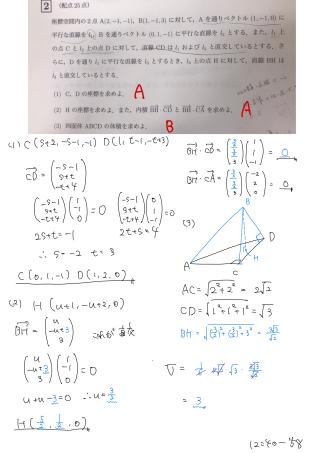 2 (配点25点)
座標空間内の2点 A(2, -1, -1), B(1, -1, 3) に対して, A を通りベクトル (1, -1, 0) に
平行な直線を l₁, B を通りベクトル (0, 1, -1) に平行な直線を l₂ とする. また, l₁ 上
の点 C と l₂ 上の点 D に対して, 直線 CD は l₁ および l₂ と直交しているとする. さ
らに, D を通り l₁ に平行な直線を l₃ とするとき, l₃ 上の点 H に対して, 直線 BH は
l₃ と直交しているとする.
(1) C, D の座標を求めよ. A
(2) H の座標を求めよ. また, 内積 BH・CD と BH・CA を求めよ. A
(3) 四面体 ABCD の体積を求めよ. B
(1) C(S+2, -S-1, -1) D(1, t-1, -t+3)
CD = (-S-1, S+t, -t+4)
(-S-1, S+t, -t+4)(1, -1, 0) = 0 (-S-1, S+t, -t+4)(0, 1, -1) = 0
2S+t = -1 2t+S = 4
∴ S = -2 t = 3
C(0, 1, -1) D(1, 2, 0)
(2) H(u+1, -u+2, 0)
BH = (u, -u+3, 3)
(u, -u+3, 3)(1, -1, 0) = 0
u+u-3 = 0 ∴ u = 3/2
H(5/2, 1/2, 0)
BH・CD = 0
BH・CA = 0
(3)
B
D
A
C
H
AC = √2²+2² = 2√2
CD = √1²+1²+1² = √3
V =
= 3
12:40-48